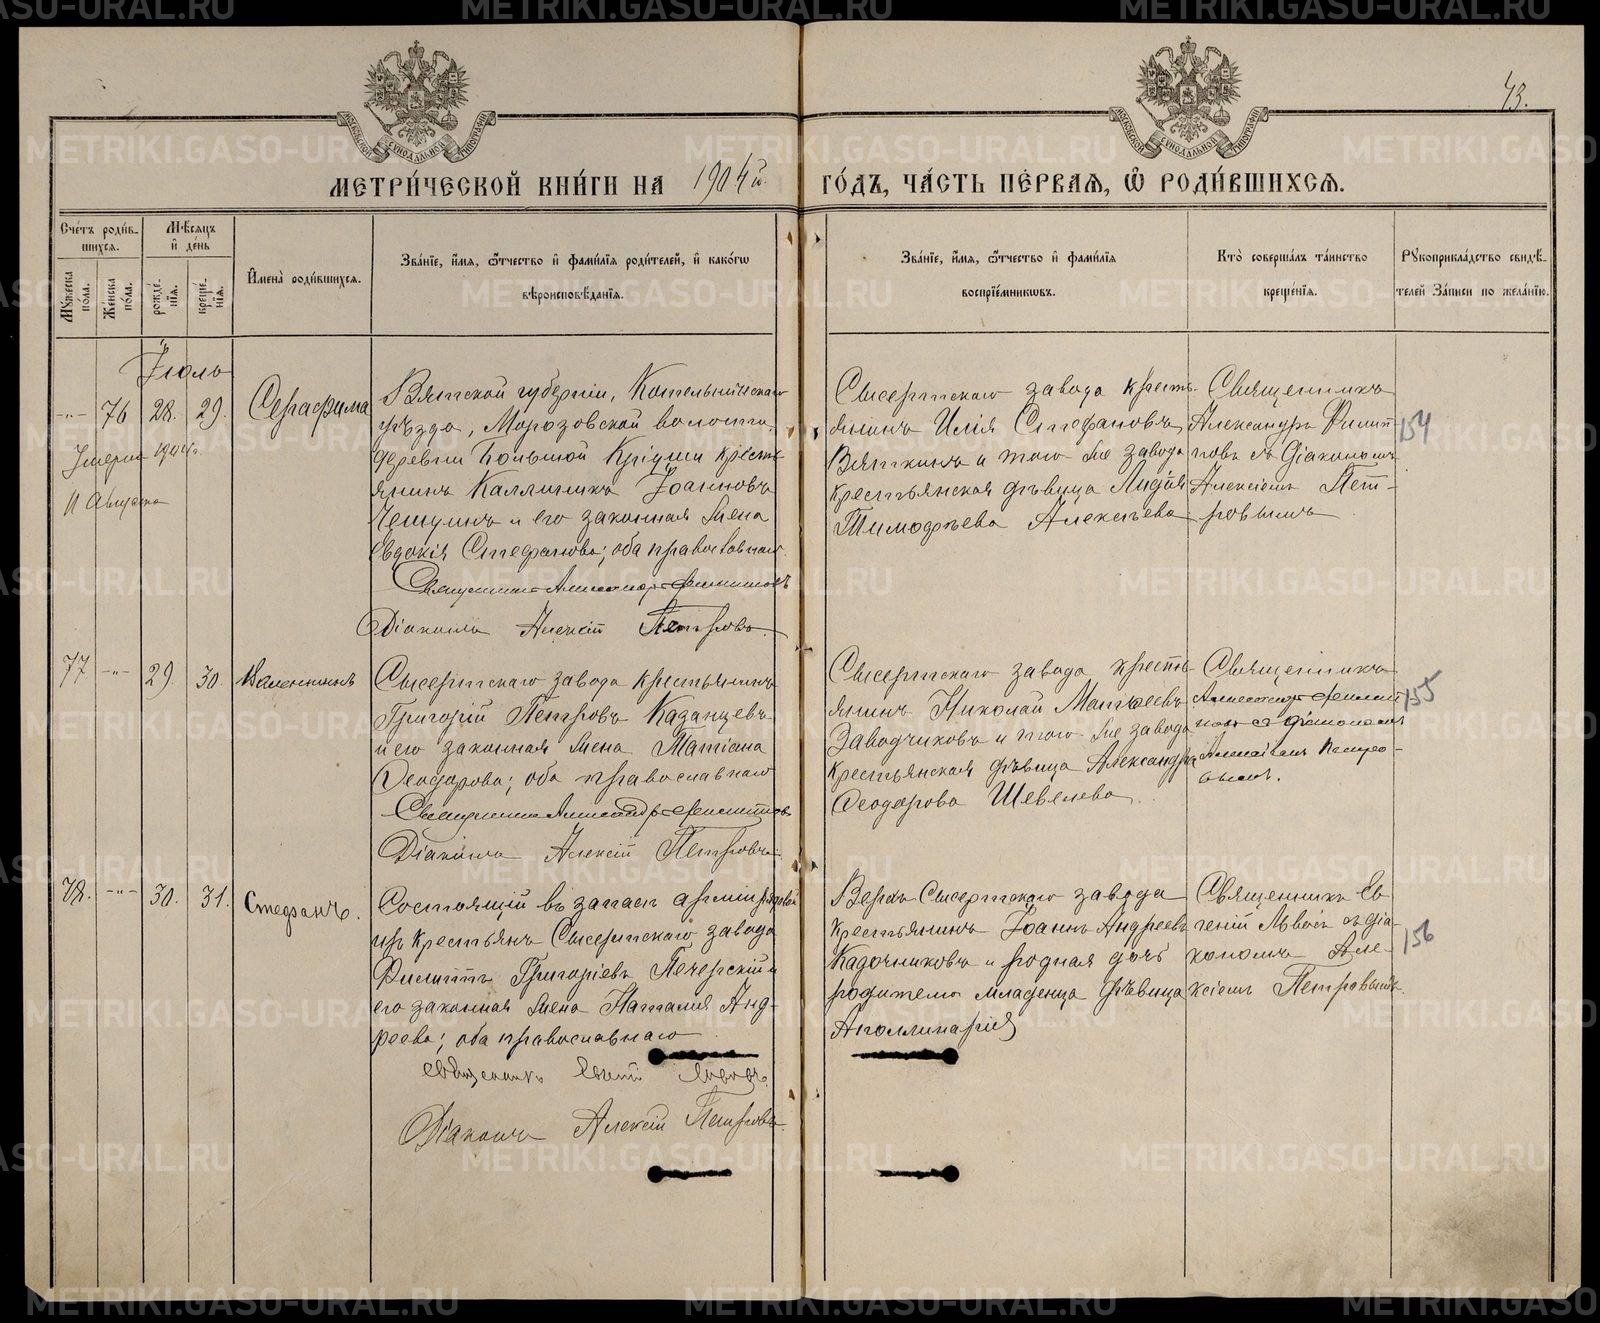 43.
МЕТРИ́ЧЕСКОЙ КНИ́ГИ НА 1904й. ГО́ДЪ, ЧА́СТЬ ПЕ́РВАЯ, Ѡ҆ РОДИ́ВШИХСЯ.
Сче́тъ роди́в-
шихся.
Мꙋ́жеска по́ла.
Же́нска по́ла.
Мѣ́сяцъ и҆ де́нь
рожде́-
нїя.
креще́-
нїя.
И҆мена̀ роди́вшихся.
Зва́нїе, и҆́мя, ѻ҆́тчество и҆ фами́лїя роди́телей, и҆ како́гѡ
вѣроисповѣ́данїя.
Зва́нїе, и҆́мя, ѻ҆́тчество и҆ фами́лїя
воспрїе́мниковъ.
Кто̀ соверша́лъ та́инство
креще́нїя.
Рꙋкоприкла́дство свидѣ́-
телей за́писи по жела́нїю.
Іюль
-"- 76 28. 29. Серафима
Умерла 1904г.
11 Августа
Вятской губерніи, Котельническаго
уѣзда, Морозовской волости,
деревни Большой Кресть-
янинъ Каллиникъ Іоанновъ
и его законная жена
Евдокія Стефанова; оба православнаго.
Священникъ Александръ Филипповъ
Діаконъ Алексій Петровъ.
Сысертскаго завода кресть-
янинъ Илія Стефановъ
Вяткинъ и того же завода
крестьянская дѣвица Лидія
Тимофѣева Алексѣева
Священникъ
Александръ Филип-
повъ съ Діакономъ
Алексіемъ Пет-
ровымъ
154
77 -"- 29. 30. Валентинъ
Сысертскаго завода крестьянинъ
Григорій Петровъ Казанцевъ
и его законная жена Татіана
Ѳеодорова; оба православнаго
Священникъ Александръ Филипповъ
Діаконъ Алексій Петровъ
Сысертскаго завода кресть-
янинъ Николай Матѳеевъ
Заводчиковъ и того же завода
крестьянская дѣвица Александра
Ѳеодорова Шевелева
Священникъ
Александръ Филип-
повъ съ діакономъ
Алексіемъ Петро-
вымъ.
155
78. -"- 30. 31. Стефанъ.
Состоящій въ запасѣ арміи рядовой
изъ крестьянъ Сысертскаго завода
Филиппъ Григоріевъ Печерскій и
его законная жена Наталія Анд-
реева; оба православнаго
Священникъ Евгеній Львовъ.
Діаконъ Алексій Петровъ.
Верхъ Сысертскаго завода
крестьянинъ Іоаннъ Андреевъ
Кадочниковъ и родная дочь
родителей младенца дѣвица
Аполлинарія
Священникъ Ев-
геній Львовъ съ діа-
кономъ Але-
ксіемъ Петровымъ.
156
METRIKI.GASO-URAL.RU